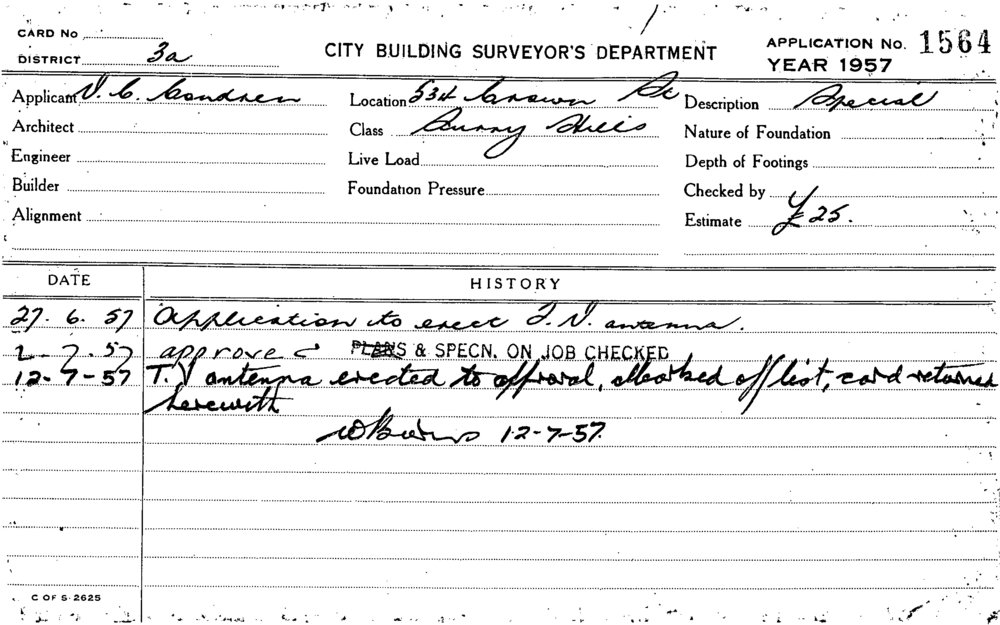 CARD No
DISTRICT 3a
CITY BUILDING SURVEYOR'S DEPARTMENT
APPLICATION No. 1564
YEAR 1957
Applicant V. C. Condren Location 534 Crown St Description Special
Architect Class Surry Hills Nature of Foundation
Engineer Live Load Depth of Footings
Builder Foundation Pressure Checked by
Alignment Estimate £25.
DATE HISTORY
27. 6. 57 Application to erect T. V. antenna.
2-7-57 approved PLANS & SPECN. ON JOB CHECKED
12-7-57 T.V antenna erected to approval, Marked off list, card returned
herewith
12-7-57.
C OF S·2625